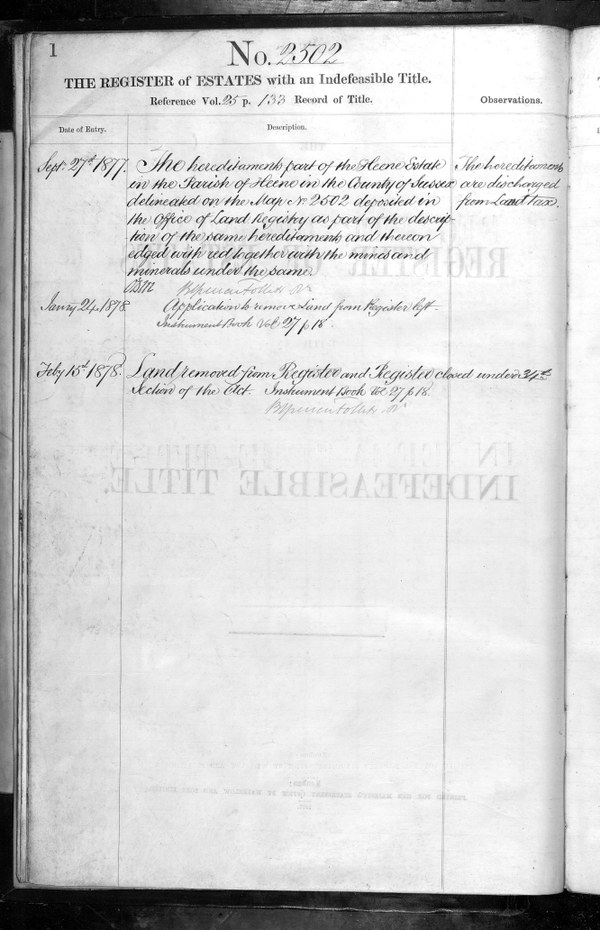 1
No. 2502
THE REGISTER of ESTATES with an Indefeasible Title.
Reference Vol. 25 p. 133 Record of Title.
Observations.
Date of Entry.
Description.
Sept. 27th 1877.
The hereditaments part of the Heene Estate
in the Parish of Heene in the County of Sussex
delineated on the Map No 2502 deposited in
the Office of Land Registry as part of the descrip-
tion of the same hereditaments and thereon
edged with red together with the mines and
minerals under the same
The hereditaments
are discharged
from Land tax.
Janry 24. 1878
Application to remove Land from Register left.
Instrument Book Vol. 27 p 18.
Feby 15th 1878.
Land removed from Register and Register closed under 34th
Section of the Act. Instrument Book Vol 27 p 18.
REGISTER
INDEFEASIBLE TITLE.